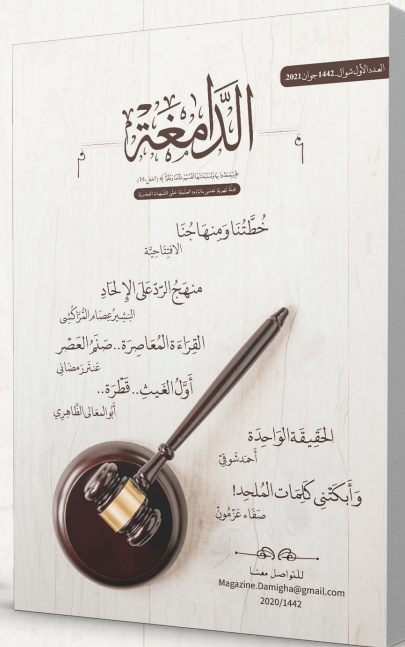 العدد الأول شوال_1442 جوان 2021.
الدَّامغَة
﴿وَجَحَدُوا بِهَا وَاسْتَيْقَنَتْهَا أَنفُسُهُمْ ظُلْمًا وَعُلُوًّا﴾ (النمل، 14).
مجلة شهرية تُعنى بالردود العلمية على الشبهات العصرية
خُطَّتُنَا وَمِنهَاجُنَا
الافتِتَاحِيَّة
منهَجُ الرّدّ عَلَى الإِلحَادِ
البَشِير عِصَام المُرَّاكُشِي
القِرَاءَة المُعَاصِرَة.. صَنَمُ العَصْر
عَنتَر رَمضَانِي
أَوَّلُ الغَيثِ.. قَطْرَة..
أَبُو المعَالي الظَّاهِرِي
الحَقِيقَة الوَاحِدَة
أَحمَد شَوقِيْ
وَأَبكَتنِي كَلِمَات المُلحِد!
صَفَاء عَزمُونْ
للتواصل معنَا
Magazine.Damigha@gmail.com
2020/1442